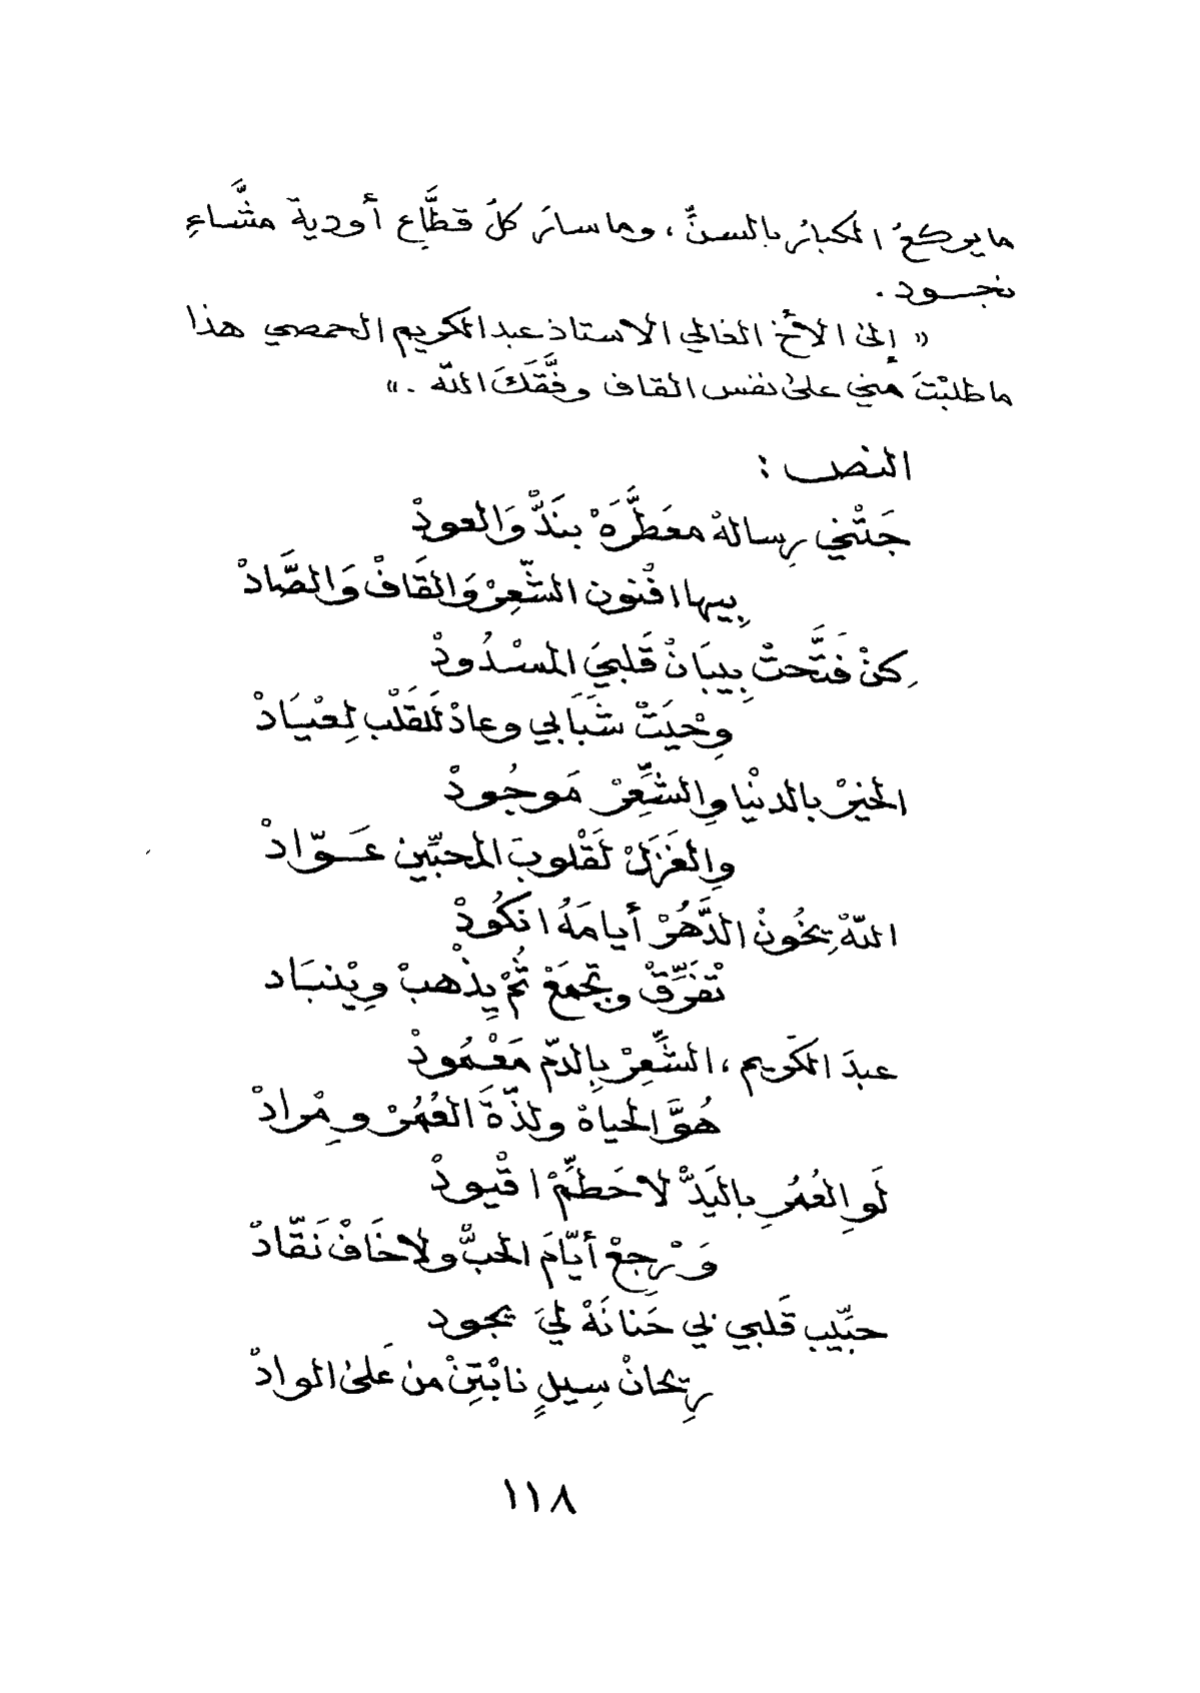 ما يوركعُ الكبارُ بالسنِّ ، وما سارَ كلُ قطَّاع أودية مشَّاءِ
نجود .
« إلى الأخ الغالي الاستاذ عبد الكريم الحمصي هذا
ما طلبْتَ مني على نفس القاف وفَّقَكَ الله . »
النص :
جَتْني رِسالهْ معَطَّرَهْ بنَدّْ وَالعودْ
بِيها افْنون الشِّعِرْ وَالقَافْ وَالصَّادْ
كِنْ فَتَّحتْ بِيبَانْ قَلبيَ المسْدُودْ
وِحْيَتْ شَبَابي وعادْ للقَلْب لِعْيَادْ
الخيرْ بالدنْيا وِالشِّعِرْ مَوجُودْ
وِالغَزَلْ لَقْلوبَ المحبِّين عَوّادْ
اللهْ يِخُونْ الدَّهَرْ أيامَهُ انكُودْ
تْفَرِّقْ وتجمَعْ ثُمْ يِذْهبْ وِيْنبَاد
عبدَ الكَريم ، الشِّعِرْ بِالدمّ مَعْمُودْ
هُوَّ الحياهْ ولذّةَ العُمُرْ ومِْرادْ
لَوِ العُمُرِ بِاليَدّْ لاحَطِّمْ اقْيودْ
وَرْجِعْ أيّامَ الحبّْ ولا خَافْ نَقّادْ
حبِّيب قَلبي لي حَنانَهْ ليَ يجود
رِيحانْ سِيلٍ نابْتِنْ من عَلى الوادْ
١١٨